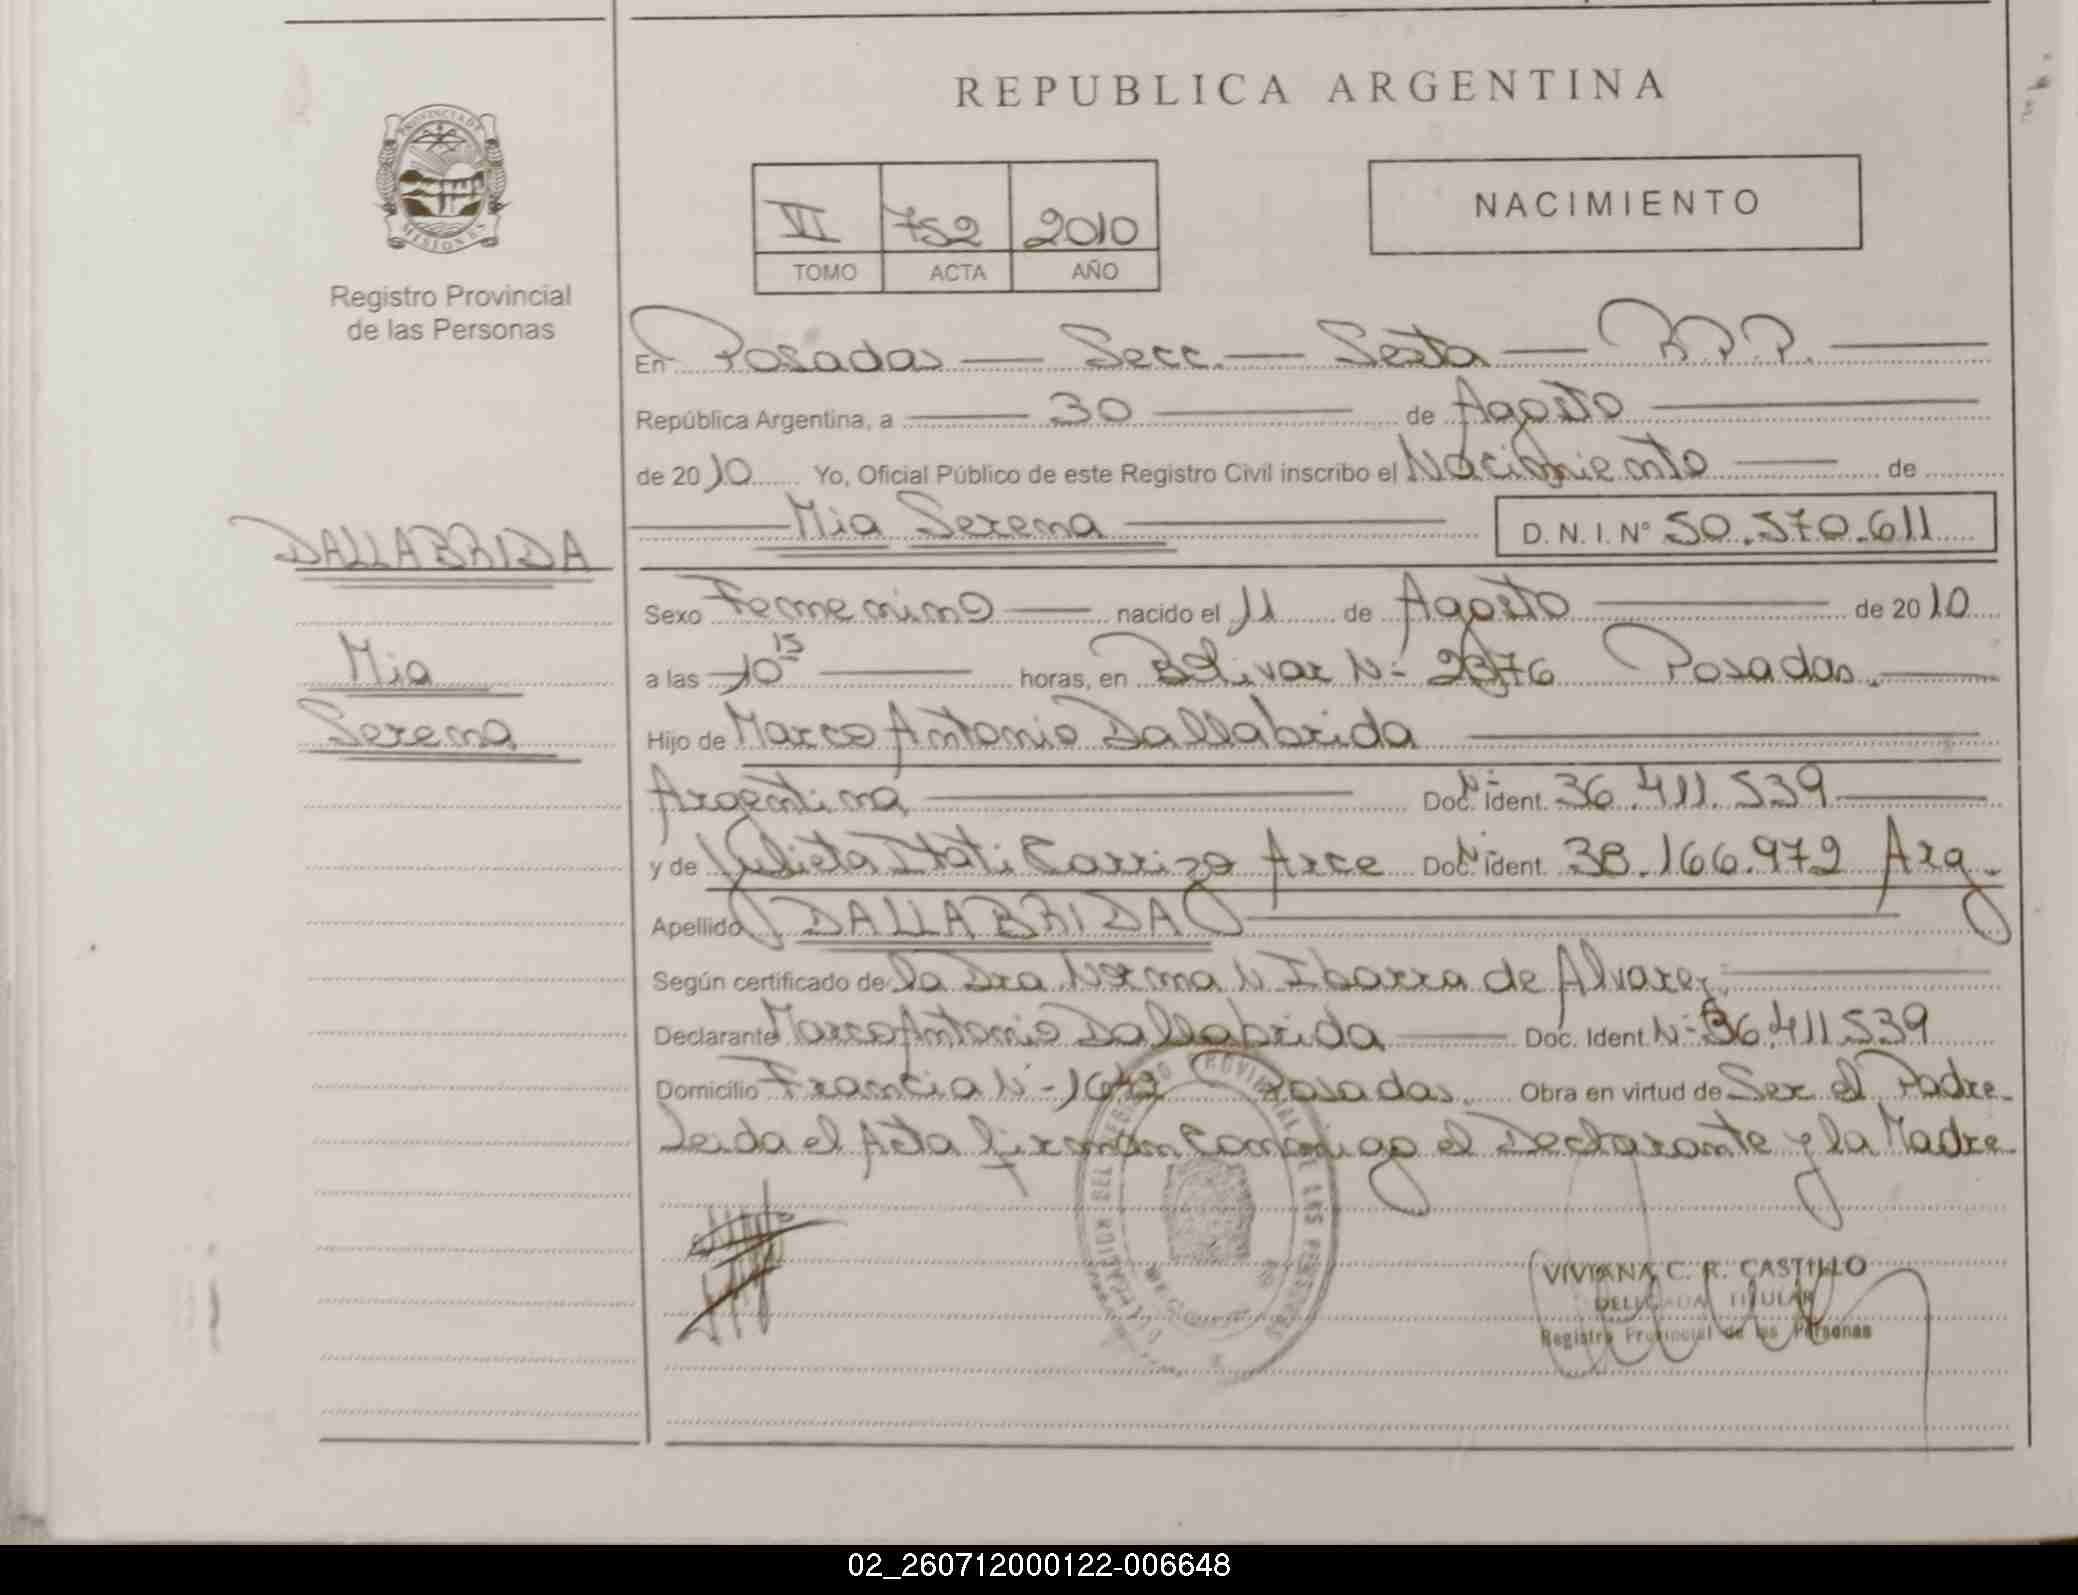 REPUBLICA ARGENTINA
PROVINCIA DE MISIONES
Registro Provincial
de las Personas
VI 752 2010
TOMO ACTA AÑO
NACIMIENTO
En Posadas — Secc. — Sexta — R.P.P. —
República Argentina, a — 30 — de Agosto —
de 2010 Yo, Oficial Público de este Registro Civil inscribo el Nacimiento — de
— Mia Serena — D. N. I. Nº 50.370.611
DALLABRIDA
Mia
Serena
Sexo Femenino — nacido el 11 de Agosto — de 2010
a las 10 15 — horas, en Bolivar N- 2376 Posadas. —
Hijo de Marco Antonio Dallabrida —
Argentina — Doc. Ident. N- 36.411.539 —
y de Julieta Itati Carrizo Arce Doc. Ident. N- 38.166.972 Arg.
Apellido DALLABRIDA —
Según certificado de la Dra Norma N Ibarra de Alvarez —
Declarante Marco Antonio Dallabrida — Doc. Ident N- 36.411.539
Domicilio Francia N- Posadas. Obra en virtud de Ser el Padre.
Leida el Acta firman Conmigo el Declarante y la Madre
VIVIANA C. R. CASTILLO
DELEGADA TITULAR
Registro Provincial de las Personas
02_260712000122-006648